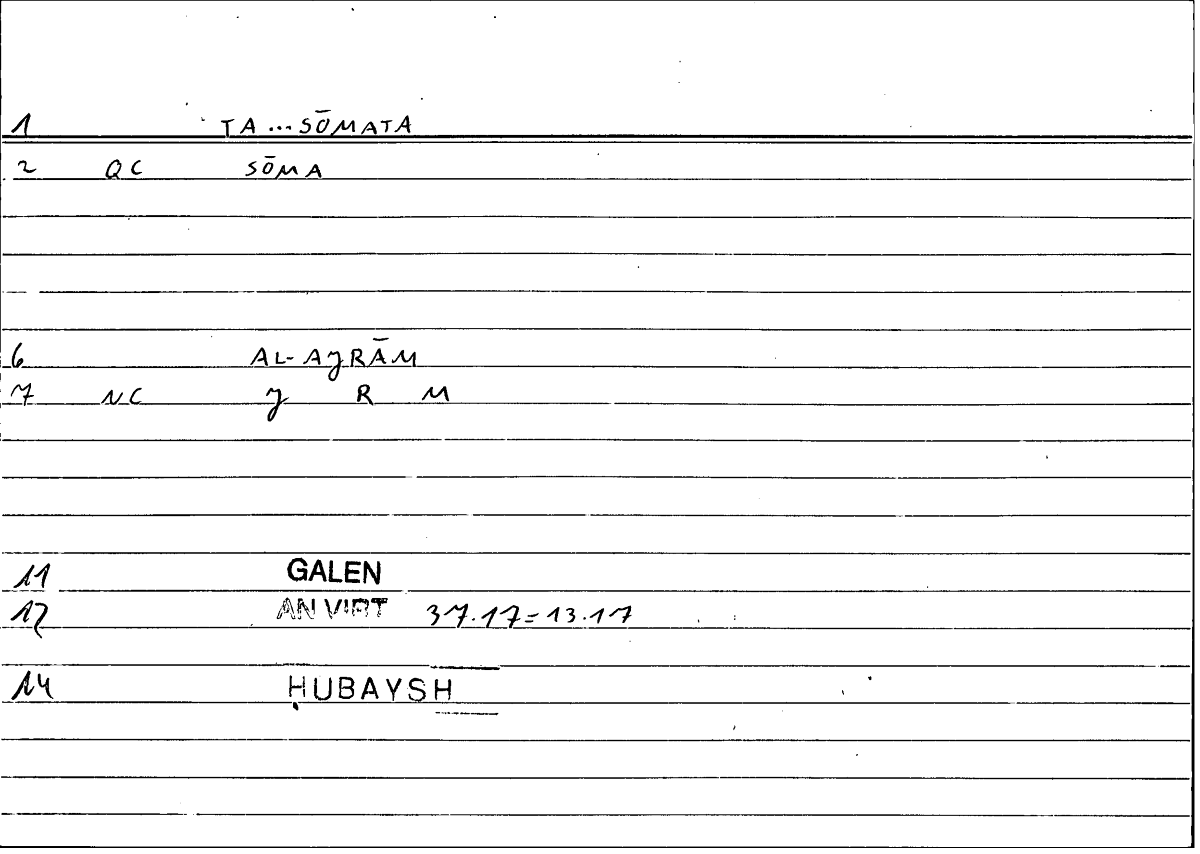 1 TA...SŌMATA
2 QC SŌMA
6 AL-AJRĀM
7 NC J R M
11 GALEN
12 AN VIRT 37.17=13.17
14 ḤUBAYSH